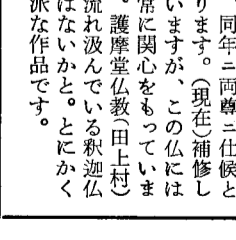 同年ニ両尊ニ仕候と
ります。（現在）補修し
いますが、この仏には
常に関心をもっていま
。護摩堂仏教（田上村）
流れ汲んでいる釈迦仏
はないかと。とにかく
派な作品です。